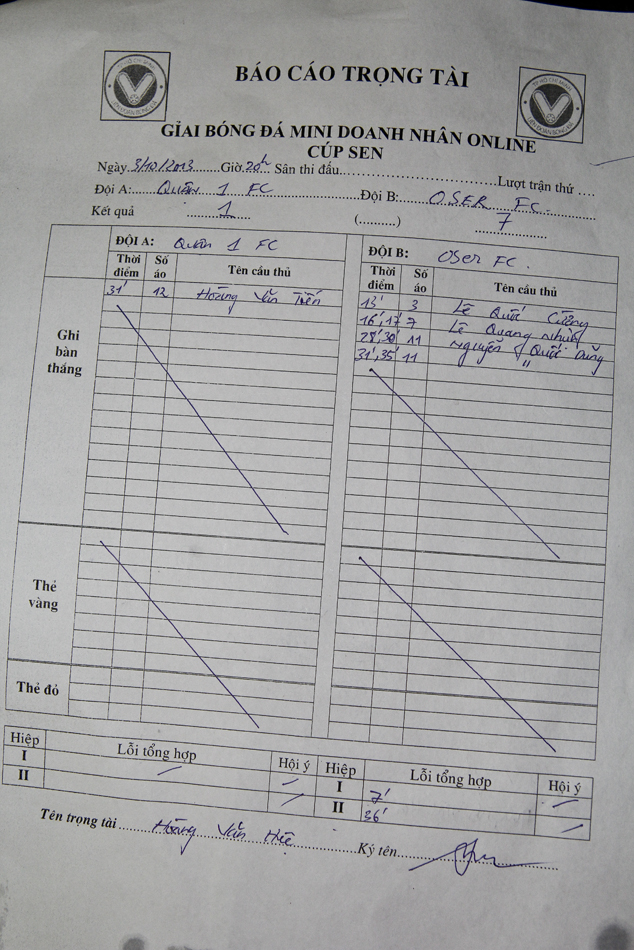 BÁO CÁO TRỌNG TÀI
GIẢI BÓNG ĐÁ MINI DOANH NHÂN ONLINE
CÚP SEN
Ngày 3/10/2013 Giờ 20h Sân thi đấu Lượt trận thứ
Đội A: Quân 1 FC Đội B: OSER FC.
Kết quả 1 (..........) 7
ĐỘI A: Quân 1 FC ĐỘI B: OSer FC.
Thời điểm Số áo Tên cầu thủ Thời điểm Số áo Tên cầu thủ
Ghi bàn thắng
31' 12 Hoàng Văn Tiến 13' 3 Lê Quốc Cường
16', 17' 7 Lê Quang Nhựt
28', 30' 11 Nguyễn Quốc Dũng
31', 35' 11 "
Thẻ vàng
Thẻ đỏ
Hiệp Lỗi tổng hợp Hội ý Hiệp Lỗi tổng hợp Hội ý
I I 7'
II II 36'
Tên trọng tài Hoàng Văn Ký tên